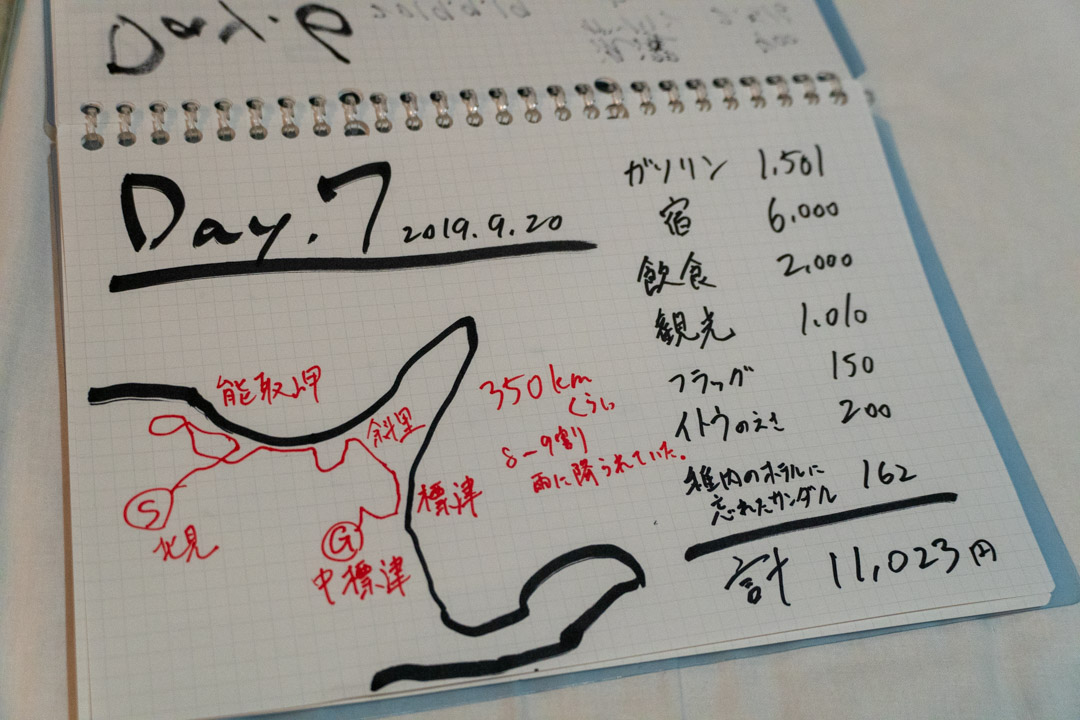 Day. 7 2019.9.20
ガソリン 1.501
宿 6.000
飲食 2,000
観光 1.010
フラッグ 150
イトウのえさ 200
稚内のホテルに
忘れたサンダル 162
計 11,023円
能取岬
斜里
350km
くらい
8-9割
雨に降られていた。
標津
S
北見
G
中標津